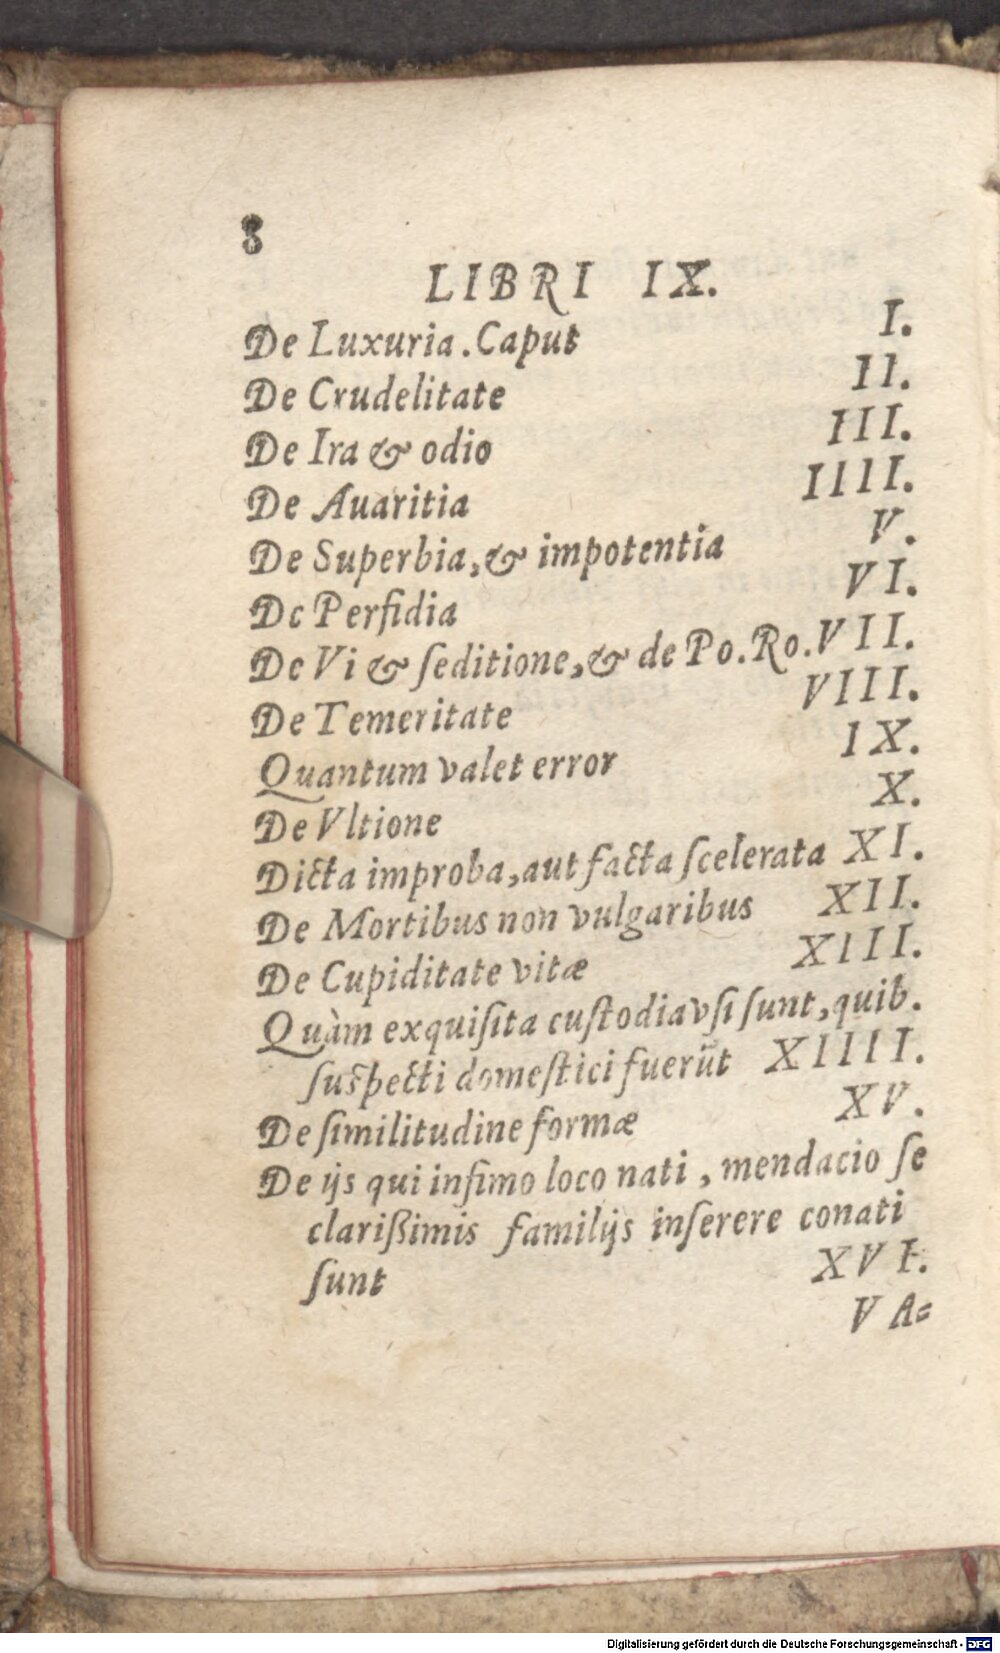 8
LIBRI IX.
De Luxuria. Caput I.
De Crudelitate II.
De Ira & odio III.
De Auaritia IIII.
De Superbia, & impotentia V.
De Perfidia VI.
De Vi & ſeditione, & de Po. Ro. VII.
De Temeritate VIII.
Quantum valet error IX.
De Vltione X.
Dicta improba, aut facta ſcelerata XI.
De Mortibus non vulgaribus XII.
De Cupiditate vitæ XIII.
Quàm exquiſita cuſtodia vſi ſunt, quib.
ſuſpecti domeſtici fuerũt XIIII.
De ſimilitudine formæ XV.
De ijs qui infimo loco nati, mendacio ſe
clarißimis familijs inſerere conati
ſunt XVI.
VA=
Digitalisierung gefördert durch die Deutsche Forschungsgemeinschaft - DFG